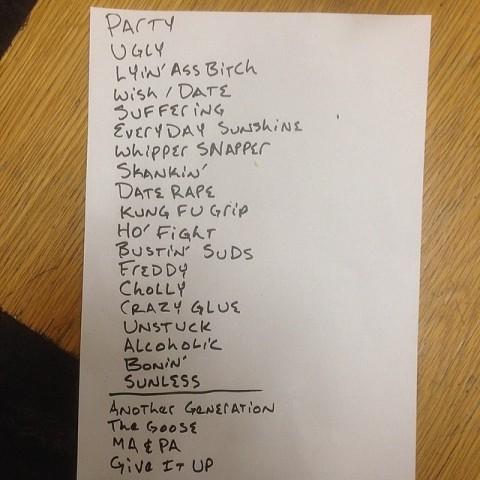 PARTY
UGLY
LYiN' ASS BITCH
WISH / DATE
SUFFERING
EVERYDAY SUNSHINE
WHIPPER SNAPPER
SKANKIN'
DATE RAPE
KUNG FU GRIP
HO' FIGHT
BUSTIN' SUDS
FREDDY
CHOLLY
CRAZY GLUE
UNSTUCK
ALCOHOLIC
BONIN'
SUNLESS
ANOTHER GENERATION
THE GOOSE
MA & PA
GIVE IT UP